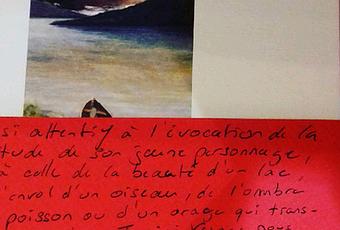 si attentif à l'évocation de la
tude de son jeune personnage,
à celle de la beauté d'un lac,
'envol d'un oiseau, de l'ombre
poisson ou d'un orage qui trans-